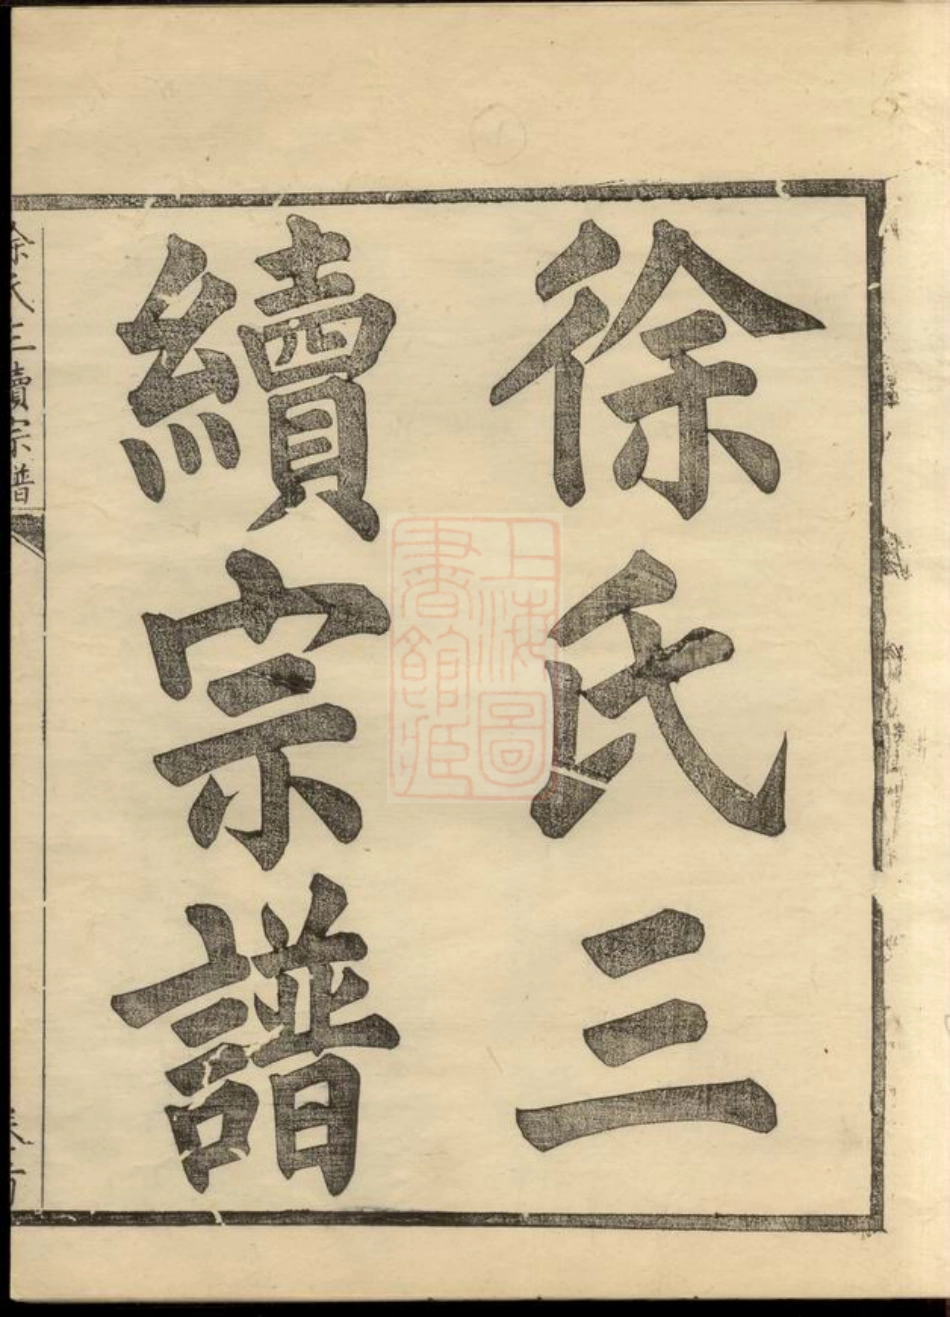 徐氏三
續宗譜
徐氏三續宗譜
卷首
上海圖
書館藏